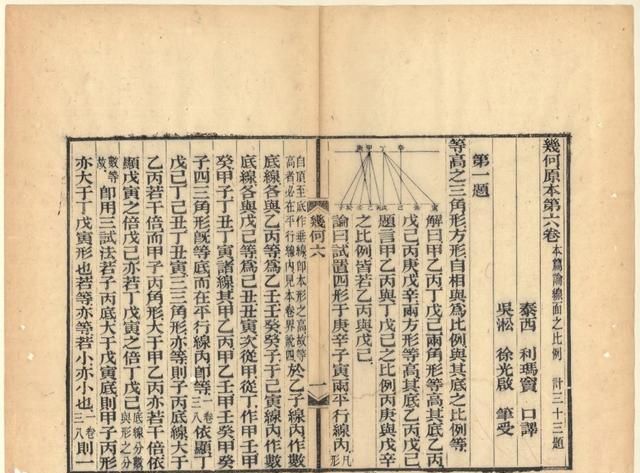 幾何原本第六卷 本篇論線面之比例 計三十三題
泰西 利瑪竇 口譯
吳淞 徐光啟 筆受
第一題
等高之三角形方形自相與爲比例與其底之比例等
解曰甲乙丙丁戊己兩角形等高其底乙丙
戊己丙庚戊辛兩方形等高其底乙丙戊己
題言甲乙丙與丁戊己之比例丙庚與戊辛
之比例皆若乙丙與戊己
論曰試置四形于庚辛子寅兩平行線內 凡
幾何六
一
自頂至底作垂線即本形之高故等
高者必在平行線內見本卷界說四 於乙子線內作數
底線各與乙丙等爲乙壬壬癸癸子于己寅線內作數
底線各與戊己等爲己丑丑寅次從甲從丁作甲壬甲
癸甲子丁丑丁寅諸線其甲乙丙甲乙壬甲壬癸甲癸
子四三角形旣等底而在平行線內卽等 一卷三八 依顯丁
戊己丁己丑丁丑寅三三角形亦等則子丙底線大于
乙丙若干倍而甲子丙角形大于甲乙丙亦若干倍依
顯戊寅之倍戊己亦若丁戊寅之倍丁戊己 底線分數與形之分
數等故 卽用三試法若子丙底大于戊寅底則甲子丙形
亦大于丁戊寅形也若等亦等若小亦小也 一卷三八 則一